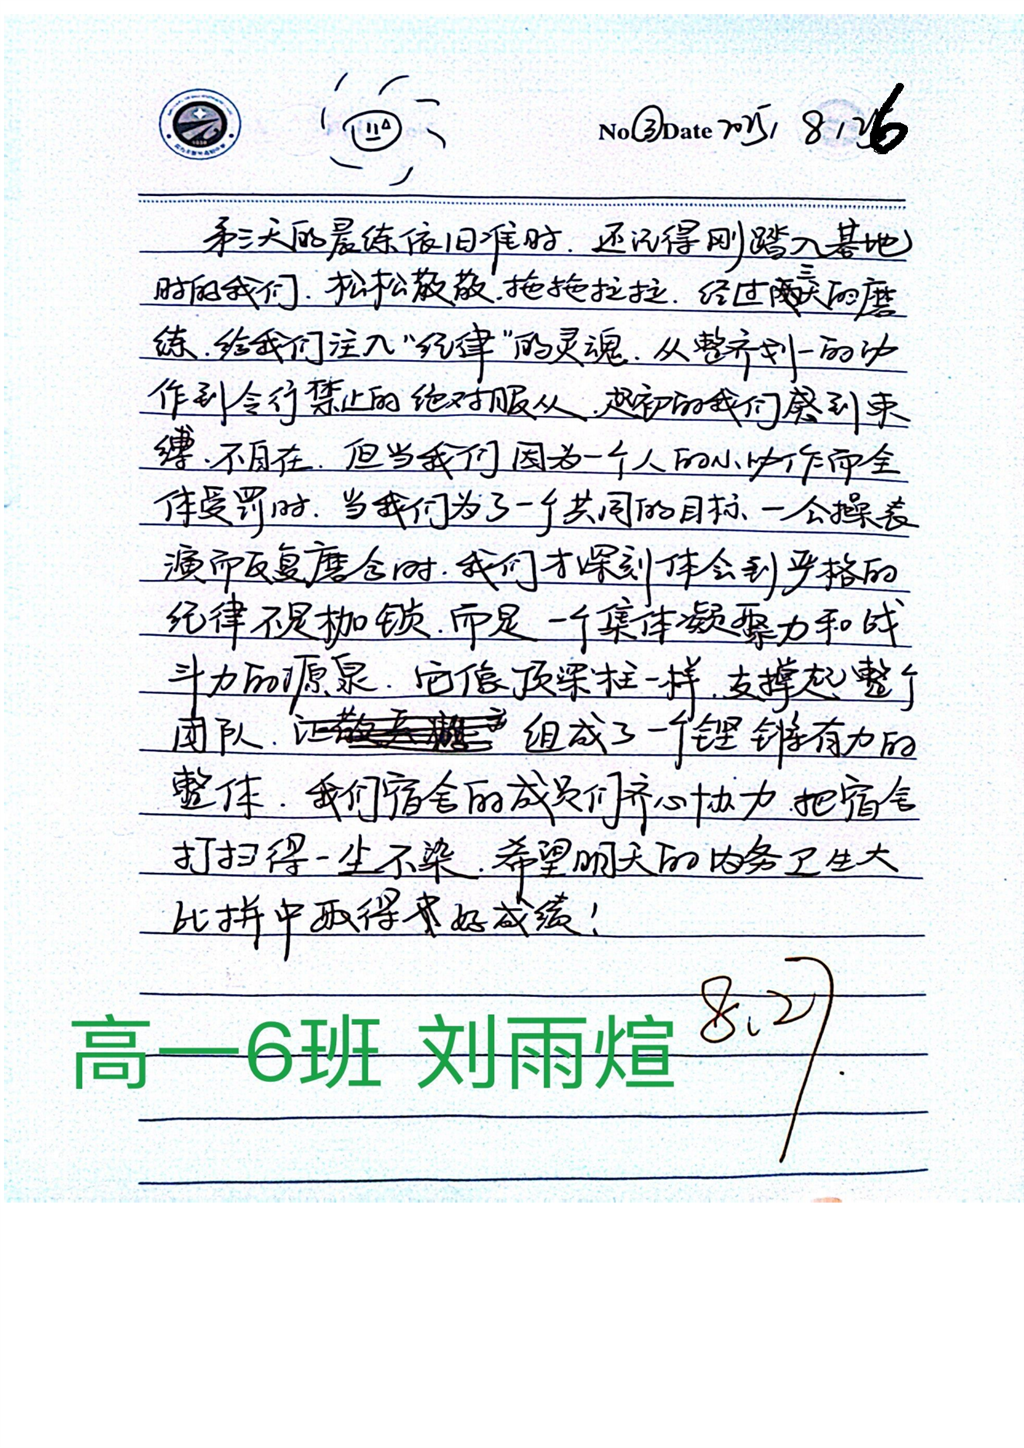 No ③ Date 2025, 8, 26
第三天的晨练依旧准时.还记得刚踏入基地
时的我们.松松散散.拖拖拉拉.经过三天的磨
练.给我们注入“纪律”的灵魂.从整齐划一的动
作到令行禁止的绝对服从.起初的我们感到束
缚.不自在.但当我们因为一个人的小动作而全
体受罚时.当我们为了一个共同的目标、一会操表
演而反复磨合时.我们才深刻体会到严格的
纪律不是枷锁.而是一个集体凝聚力和战
斗力的源泉.它像顶梁柱一样.支撑起整个
团队.让 组成了一个铿锵有力的
整体.我们宿舍的成员们齐心协力 把宿舍
打扫得一尘不染.希望明天的内务卫生大
比拼中取得好成绩!
8.27
高一6班 刘雨煊